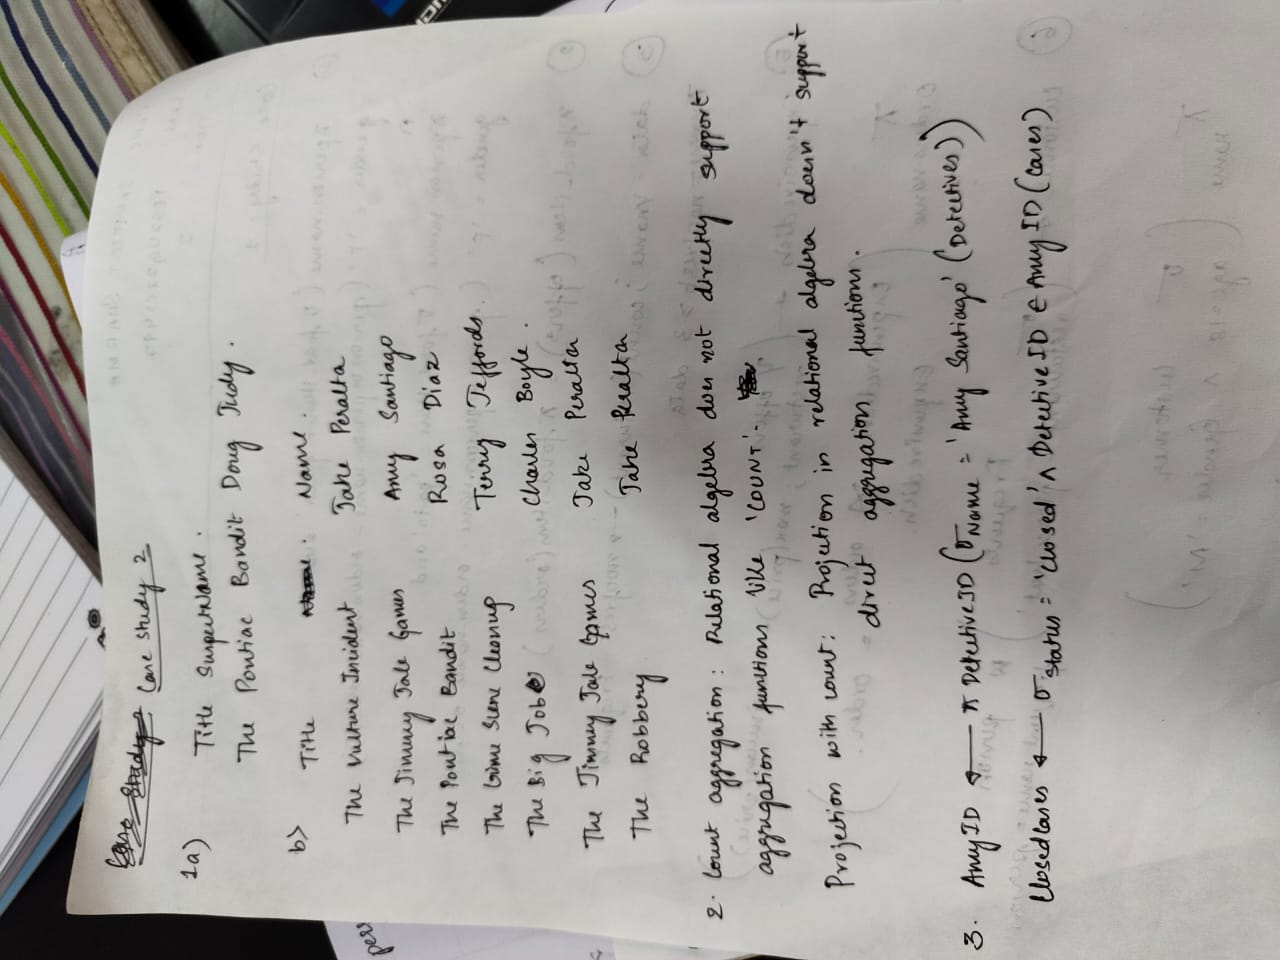 Case Study 2
1a)
Title SuspectName.
The Pontiac Bandit Doug Judy.
b)
Title Name.
The Vulture Incident Jake Peralta
The Jimmy Jale Games Amy Santiago
The Pontiac Bandit Rosa Diaz
The Crime Scene Cleanup Terry Jeffords.
The Big Job Charles Boyle.
The Jimmy Jale Games Jake Peralta
The Robbery Jake Peralta
2. Count aggregation: Relational algebra does not directly support
aggregation functions like 'COUNT'.
Projection with count: Projection in relational algebra doesn't support
direct aggregation functions.
3. AmyID ← π DetectiveID (σ Name = 'Amy Santiago' (Detectives))
ClosedCases ← σ Status = 'closed' ∧ Detective ID ∈ Amy ID (Cases)